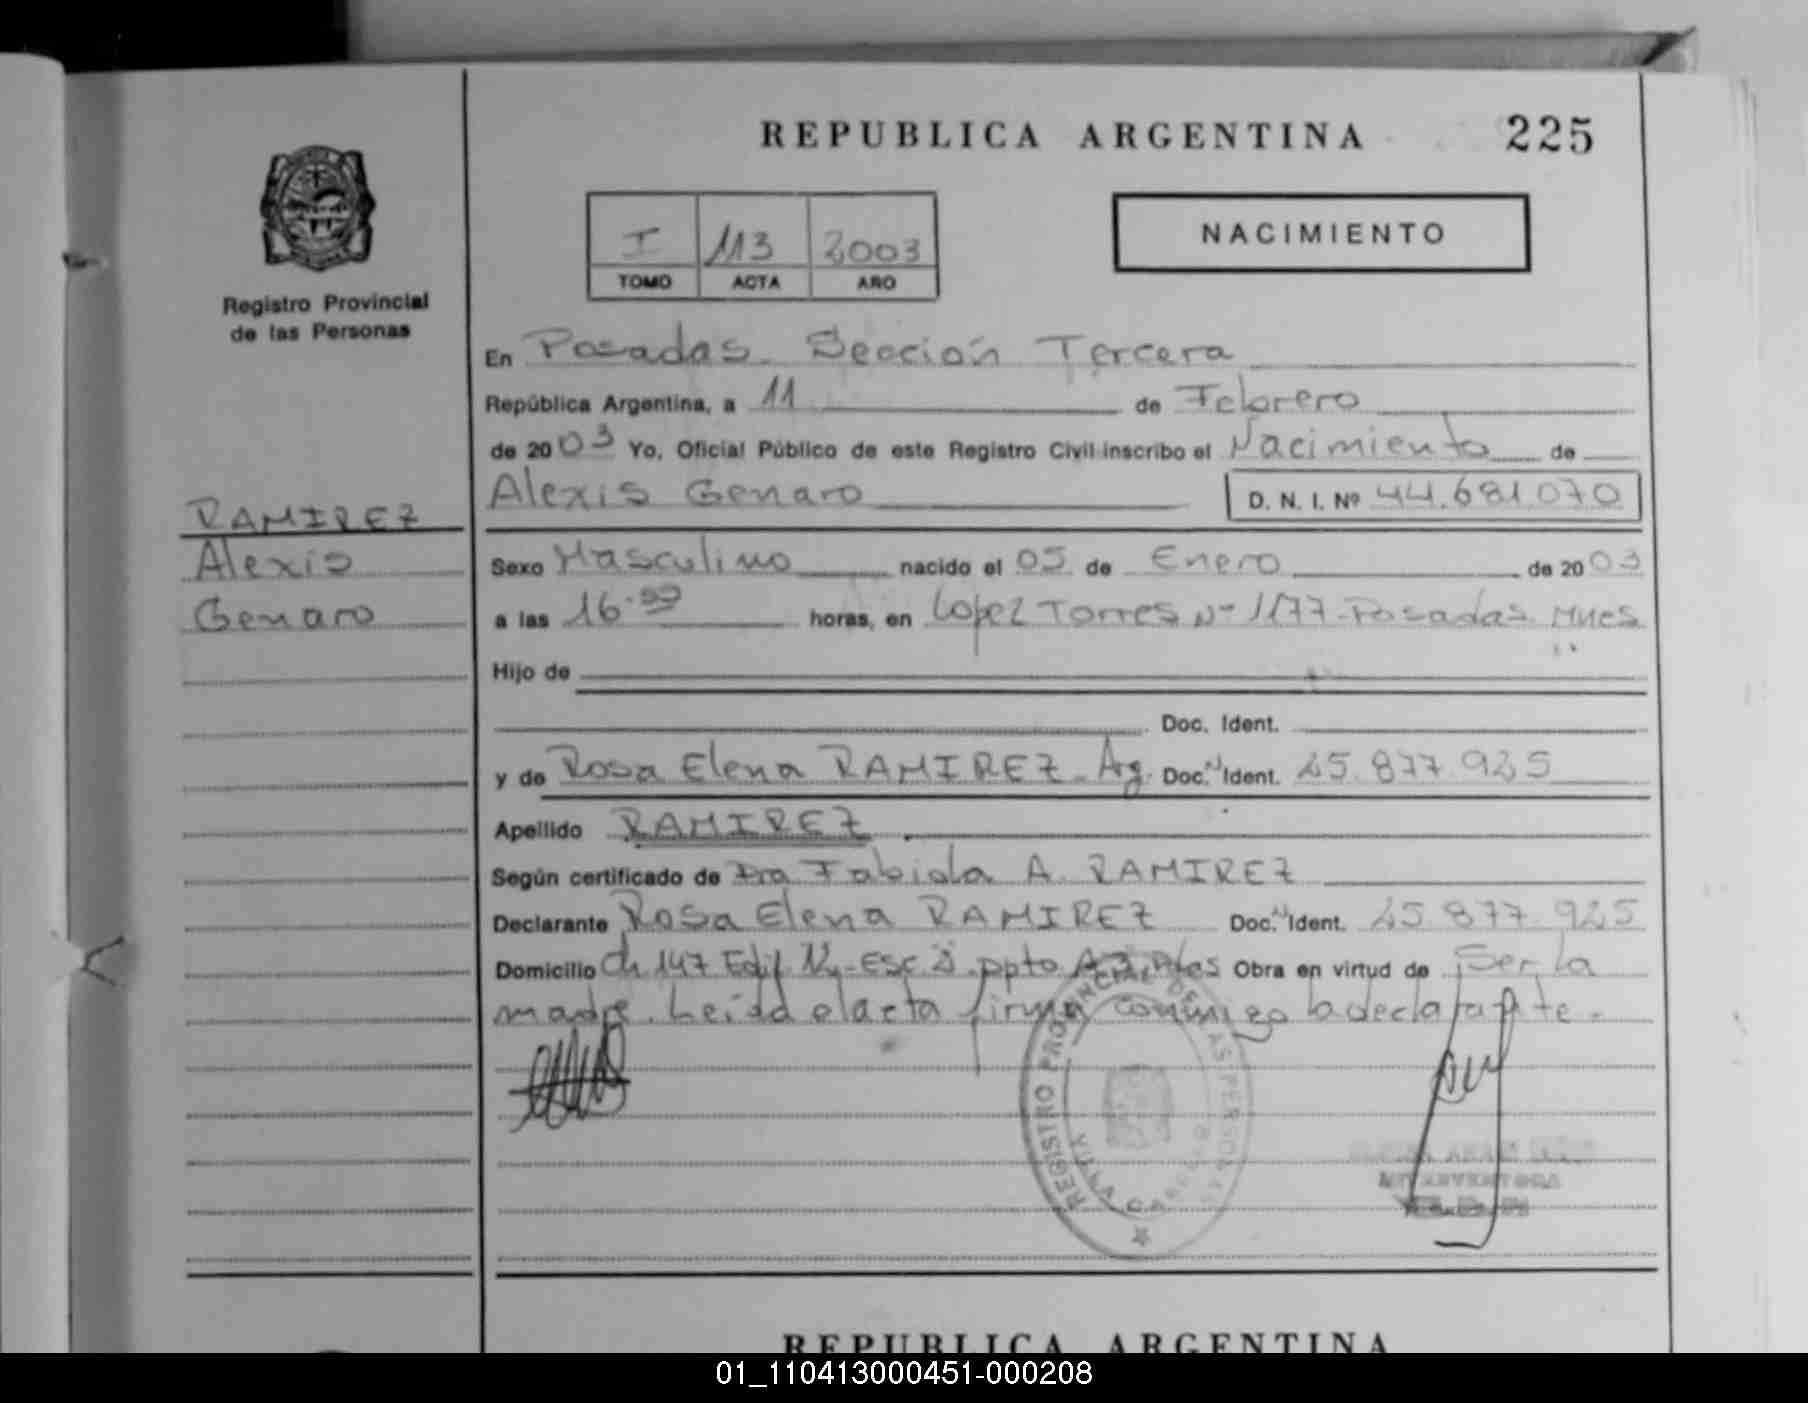 REPUBLICA ARGENTINA 225
I 113 2003
TOMO ACTA AÑO
NACIMIENTO
Registro Provincial
de las Personas
En Posadas Sección Tercera
República Argentina, a 11 de Febrero
de 2003 Yo, Oficial Público de este Registro Civil inscribo el Nacimiento de
Alexis Genaro D. N. I. Nº 44.681.070
RAMIREZ
Alexis
Genaro
Sexo Masculino nacido el 05 de Enero de 2003
a las 16 horas, en Lopez Torres Nº 1177 - Posadas Mnes
Hijo de
Doc. Ident.
y de Rosa Elena RAMIREZ Arg. Doc. Ident. 25.877.925
Apellido RAMIREZ
Según certificado de Dra Fabiola A. RAMIREZ
Declarante Rosa Elena RAMIREZ Doc. Ident. 25.877.925
Domicilio Ch 147 Edif Esc ppto Obra en virtud de Ser la
madre. Leída el acta firma conmigo la declarante.
REGISTRO PROVINCIAL DE LAS PERSONAS
INTERVENTORA
REPUBLICA ARGENTINA
01_110413000451-000208